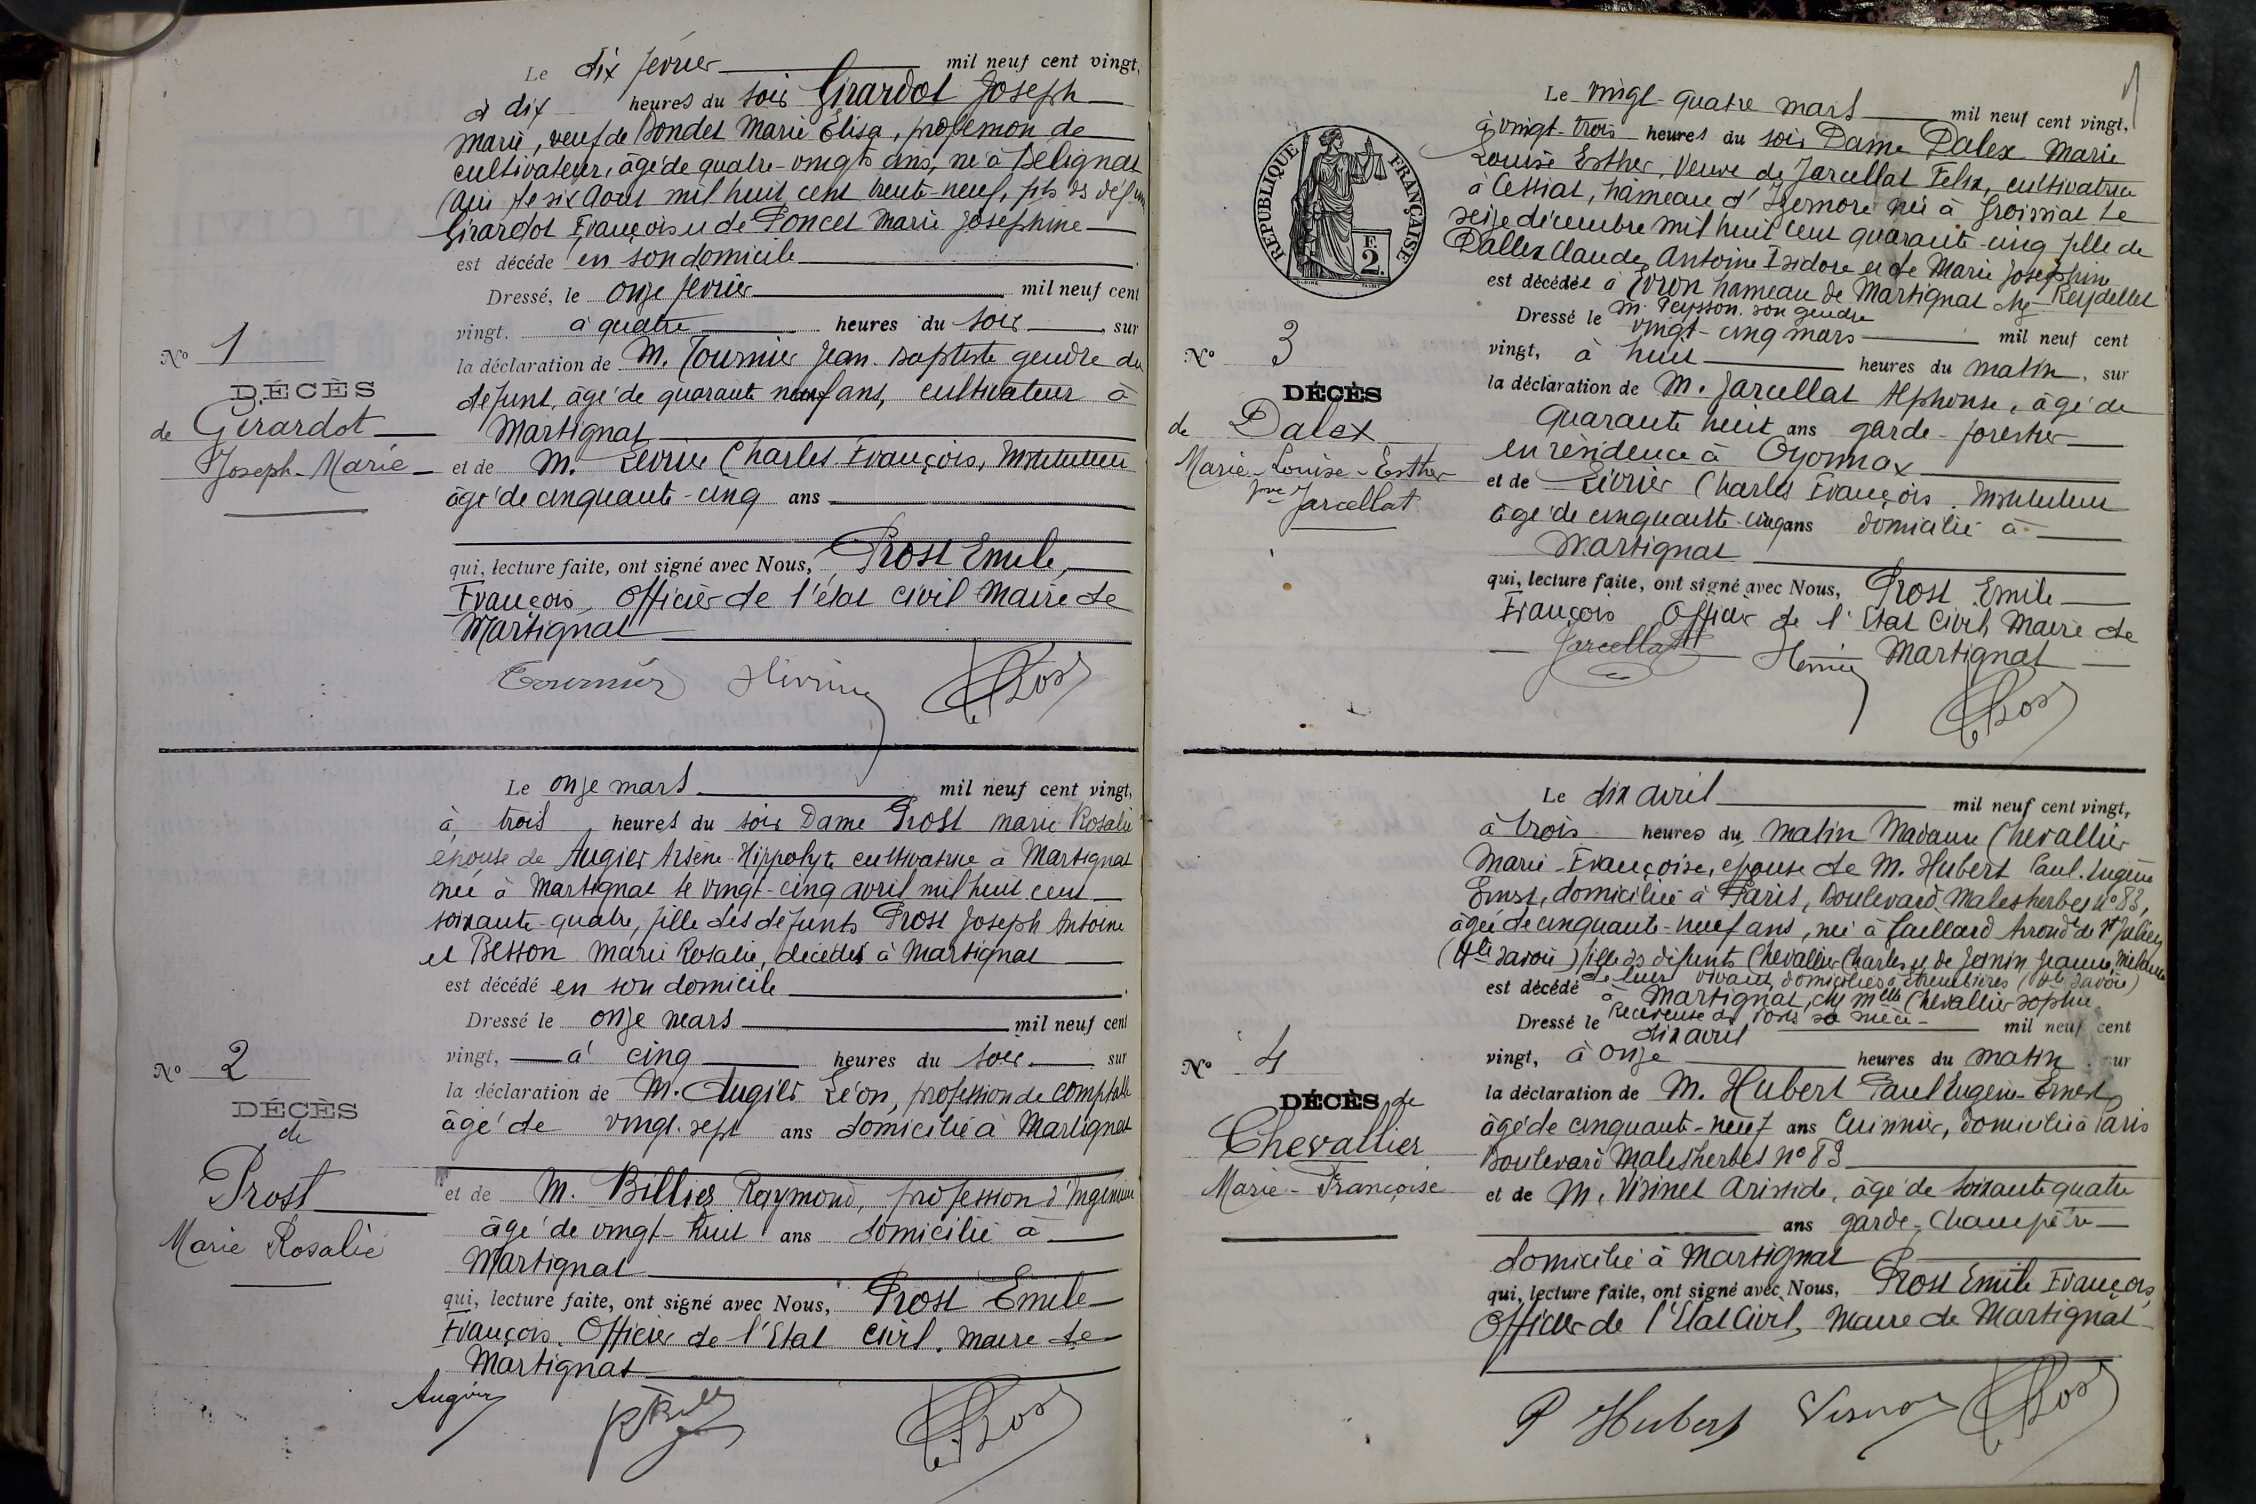 Le dix février mil neuf cent vingt,
à dix heures du soir Girardot Joseph
Marie, veuf de Dondet Marie Elisa, profession de
cultivateur, âgé de quatre-vingts ans, né à Bélignat
(Ain) le six Aout mil huit cent trente-neuf, fils des
Girardot François et de Poncet Marie Joséphine
est décédé en son domicile
Dressé, le onze février mil neuf cent
vingt. à quatre heures du soir, sur
la déclaration de M. Tournier Jean-Baptiste gendre du
défunt, âgé de quarante neuf ans, cultivateur à
Martignat
et de M. Charles François, Instituteur
âgé de cinquante-cinq ans
qui, lecture faite, ont signé avec Nous, Prost Emile,
François, Officier de l'état civil Maire de
Martignat
Tournier Prost
N° 1
DÉCÈS
de Girardot
Joseph-Marie
Le onze mars mil neuf cent vingt,
à, trois heures du soir Dame Prost Marie Rosalie
épouse de Augier Arsène-Hippolyte cultivatrice à Martignat
née à Martignat le vingt-cinq avril mil huit cent
soixante-quatre, fille des défunts Prost Joseph Antoine
et Besson Marie Rosalie, décédés à Martignat
est décédé en son domicile
Dressé le onze mars mil neuf cent
vingt, à cinq heures du soir, sur
la déclaration de M. Augier Léon, profession de comptable
âgé de vingt-sept ans domicilié à Martignat
et de M. Billier Raymond, profession d'Ingénieur
âgé de vingt-huit ans domicilié à
Martignat
qui, lecture faite, ont signé avec Nous, Prost Emile
François. Officier de l'Etat civil. Maire de
Martignat
Augier Prost
N° 2
DÉCÈS
de
Prost
Marie Rosalie
1
Le vingt-quatre mars mil neuf cent vingt,
à vingt-trois heures du soir Dame Dalex Marie
Louise Esther, Veuve de Jarcellat Felix, cultivatrice
à Cessiat, hameau d'Izernore née à Groissiat le
seize décembre mil huit cent quarante-cinq fille de
Dallex Claude, Antoine Isidore et de Marie Joséphine
est décédée à Evron hameau de Martignat chez Reydellet
M. Peysson son gendre
Dressé le vingt-cinq mars mil neuf cent
vingt, à huit heures du matin, sur
la déclaration de M. Jarcellat Alphonse, âgé de
quarante huit ans garde-forestier
en résidence à Oyonnax
et de Charles François. Instituteur
âgé de cinquante-cinq ans domicilié à
Martignat
qui, lecture faite, ont signé avec Nous, Prost Emile
François Officier de l'Etat Civil, Maire de
Martignat
Jarcellat Prost
RÉPUBLIQUE FRANÇAISE
2 F.
N° 3
DÉCÈS
de Dalex
Marie-Louise-Esther
Vve Jarcellat
Le dix avril mil neuf cent vingt,
à trois heures du matin Madame Chevallier
Marie-Françoise, épouse de M. Hubert Paul-Eugène
Ernest, domiciliée à Paris, Boulevard Malesherbes n° 83,
âgée de cinquante-neuf ans, née à Gaillard Arrondt de St Julien
(Hte Savoie) fille des défunts Chevallier Charles et de Jeanne Mélanie
de leur vivant domiciliés à Etrembières (Hte Savoie)
est décédé à Martignat, chez Melle Chevallier Sophie
Receveuse des Postes sa nièce
Dressé le dix avril mil neuf cent
vingt, à onze heures du matin sur
la déclaration de M. Hubert Paul Eugène-Ernest
âgé de cinquante-neuf ans Cuisinier, domicilié à Paris
Boulevard Malesherbes n° 83
et de M. Visinet Aristide, âgé de soixante quatre
ans garde-champêtre
domicilié à Martignat
qui, lecture faite, ont signé avec Nous, Prost Emile François,
Officier de l'Etat Civil, Maire de Martignat
P Hubert Prost
N° 4
DÉCÈS de
Chevallier
Marie-Françoise